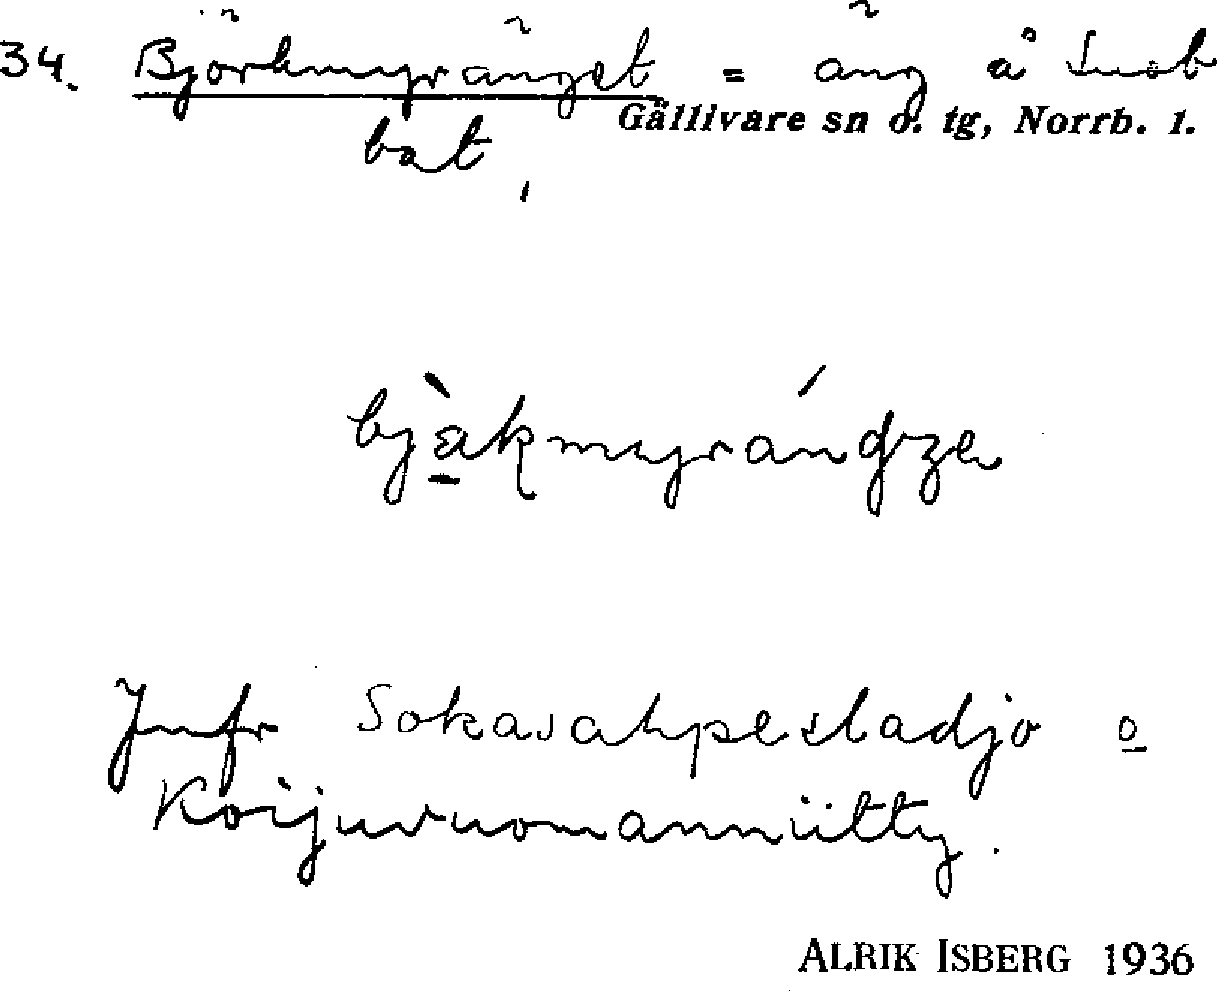 34. Björkmyränget = äng å Snob
Gällivare sn o. tg, Norrb. l.
bat,
Jmfr Sokasahpesladjo o
Koijuvuomanniitty.
ALRIK ISBERG 1936